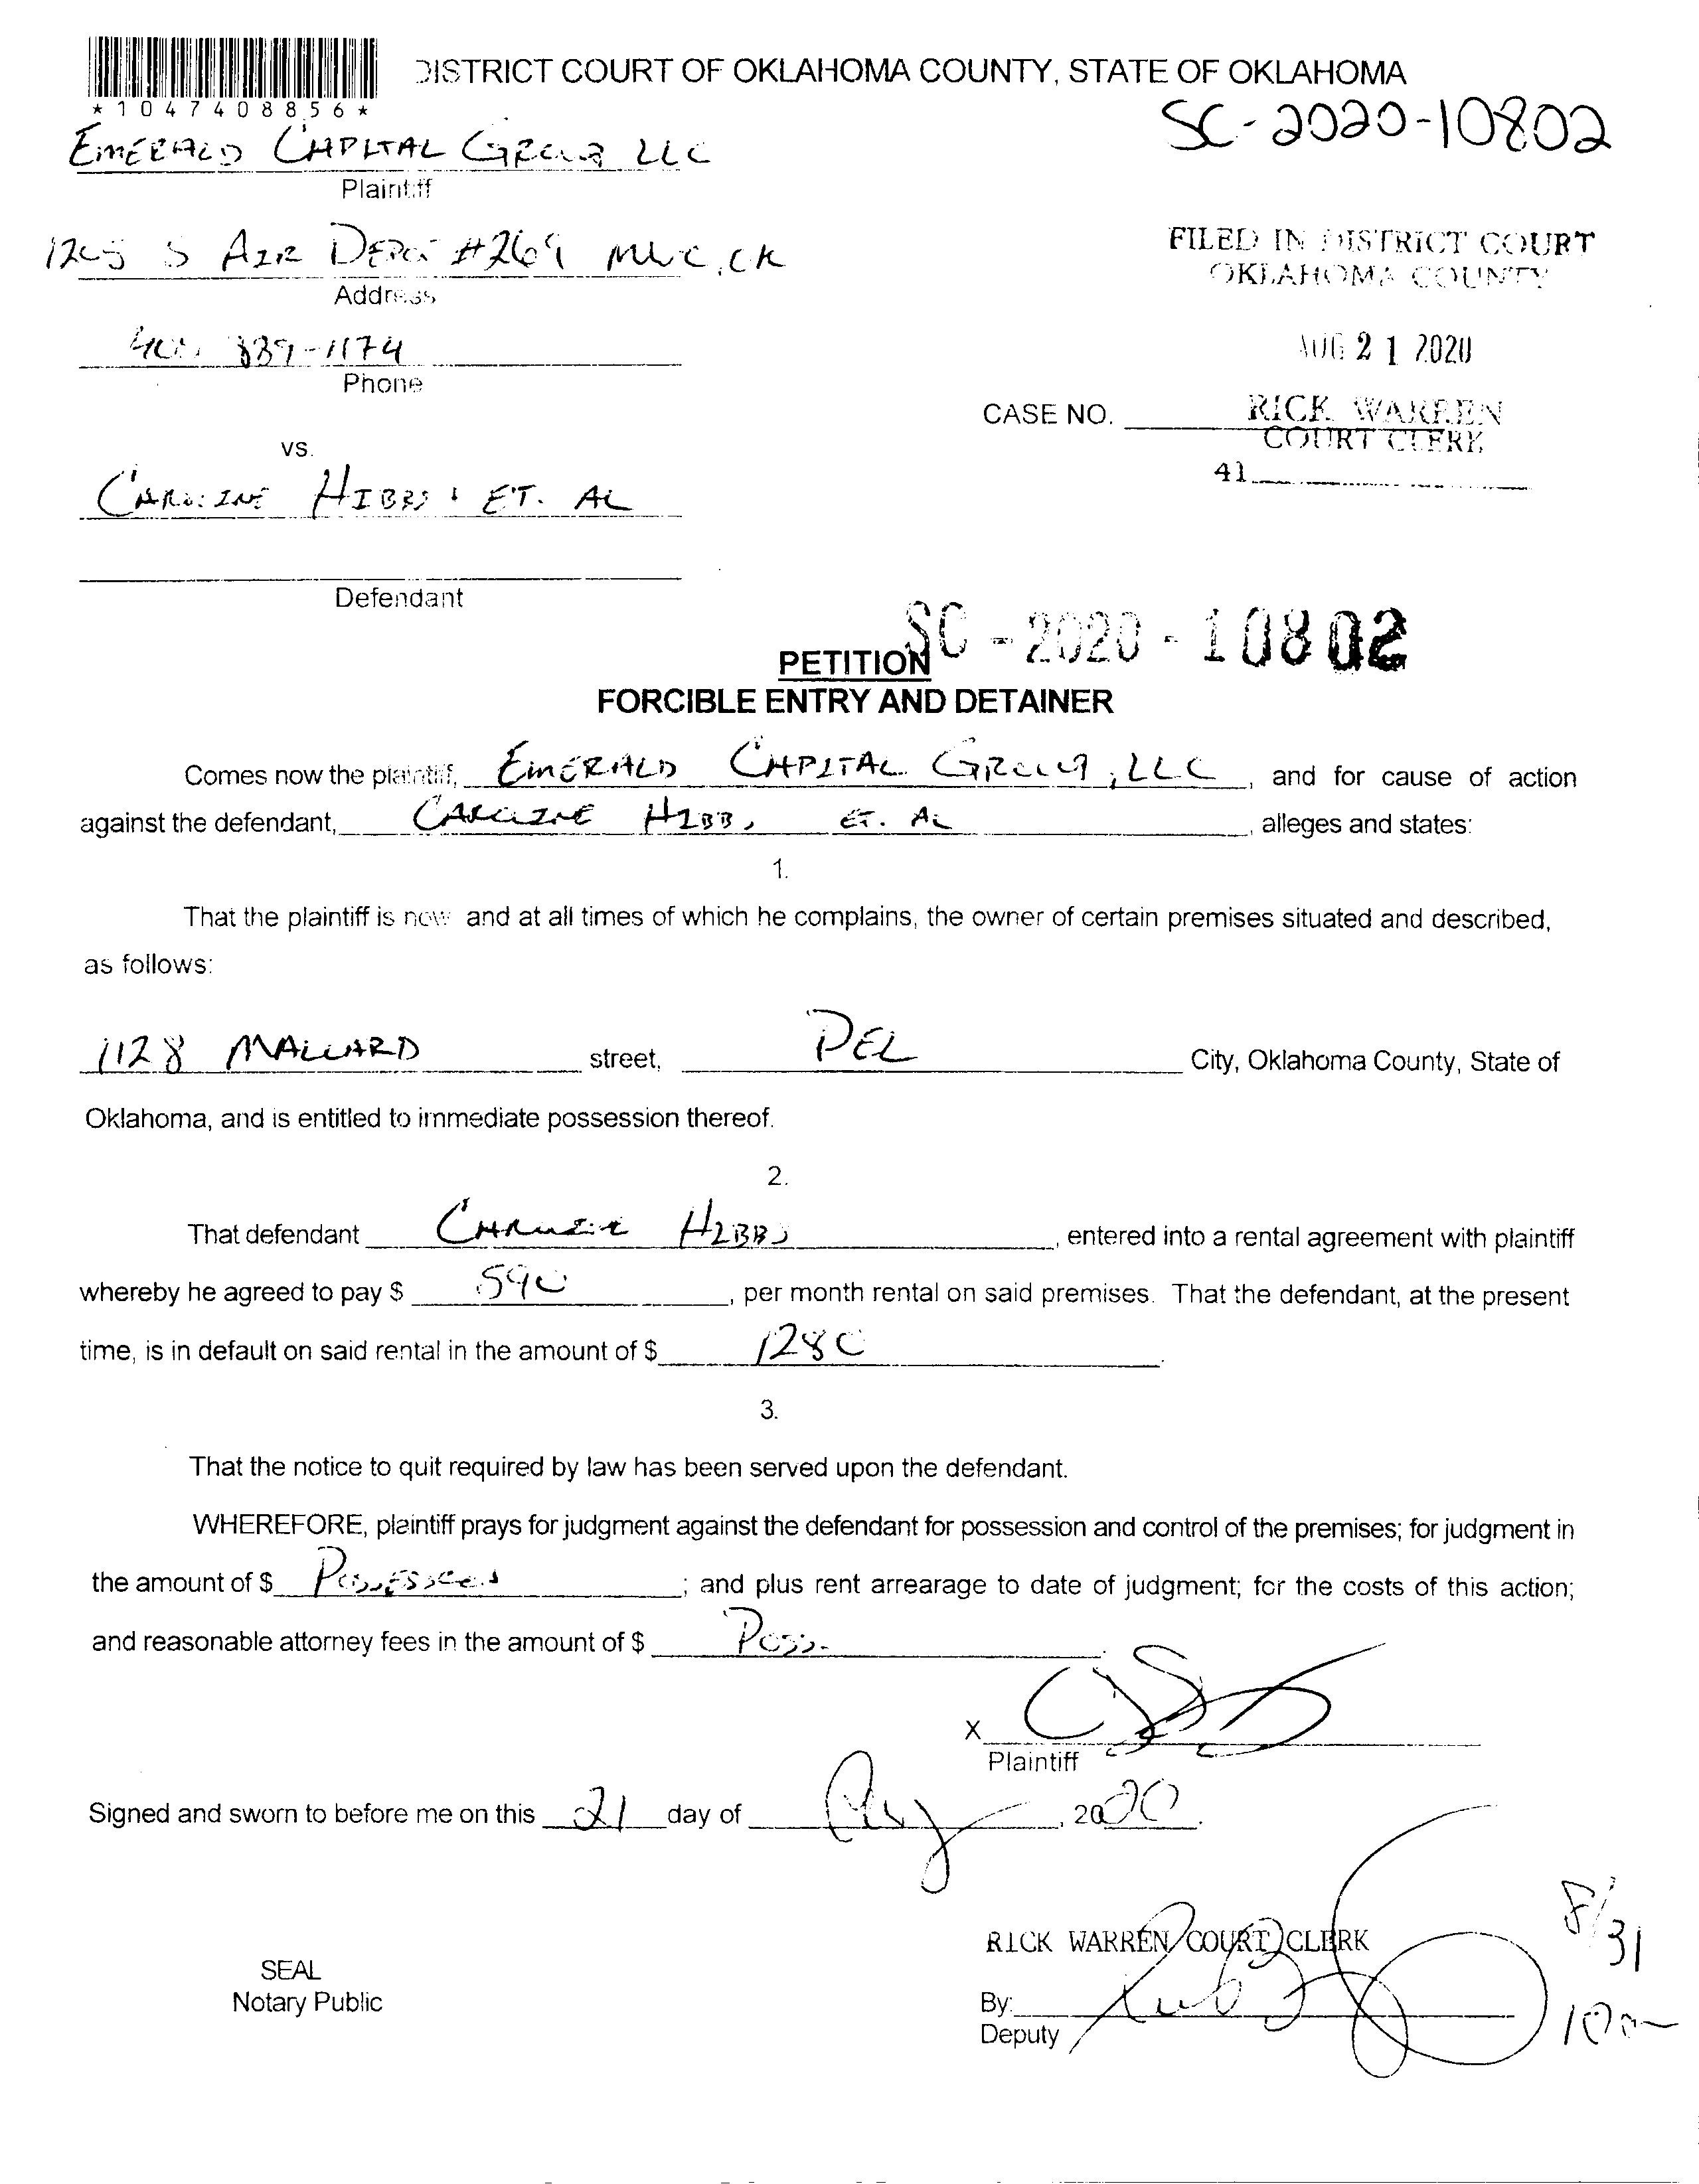 DISTRICT COURT OF OKLAHOMA COUNTY, STATE OF OKLAHOMA
*1047408856*
SC-2020-10802
EMERALD CAPITAL GROUP LLC
Plaintiff
1205 S AIR DEPOT #269 MWC, OK
Address
FILED IN DISTRICT COURT
OKLAHOMA COUNTY
839-1174
Phone
AUG 21 2020
CASE NO.
RICK WARREN
COURT CLERK
41
vs.
CAROLINE HIBBS ET. AL
Defendant
SC-2020-10802
PETITION
FORCIBLE ENTRY AND DETAINER
Comes now the plaintiff, EMERALD CAPITAL GROUP, LLC, and for cause of action
against the defendant, CAROLINE HIBBS ET. AL, alleges and states:
1.
That the plaintiff is now and at all times of which he complains, the owner of certain premises situated and described,
as follows:
1128 MALLARD street, DEL City, Oklahoma County, State of
Oklahoma, and is entitled to immediate possession thereof.
2.
That defendant CAROLINE HIBBS, entered into a rental agreement with plaintiff
whereby he agreed to pay $ 590, per month rental on said premises. That the defendant, at the present
time, is in default on said rental in the amount of $ 1280.
3.
That the notice to quit required by law has been served upon the defendant.
WHEREFORE, plaintiff prays for judgment against the defendant for possession and control of the premises; for judgment in
the amount of $ POSSESSION; and plus rent arrearage to date of judgment; for the costs of this action;
and reasonable attorney fees in the amount of $ POSS.
X
Plaintiff
Signed and sworn to before me on this 21 day of Aug, 2020.
RICK WARREN COURT CLERK
8/31
SEAL
Notary Public
By:
Deputy